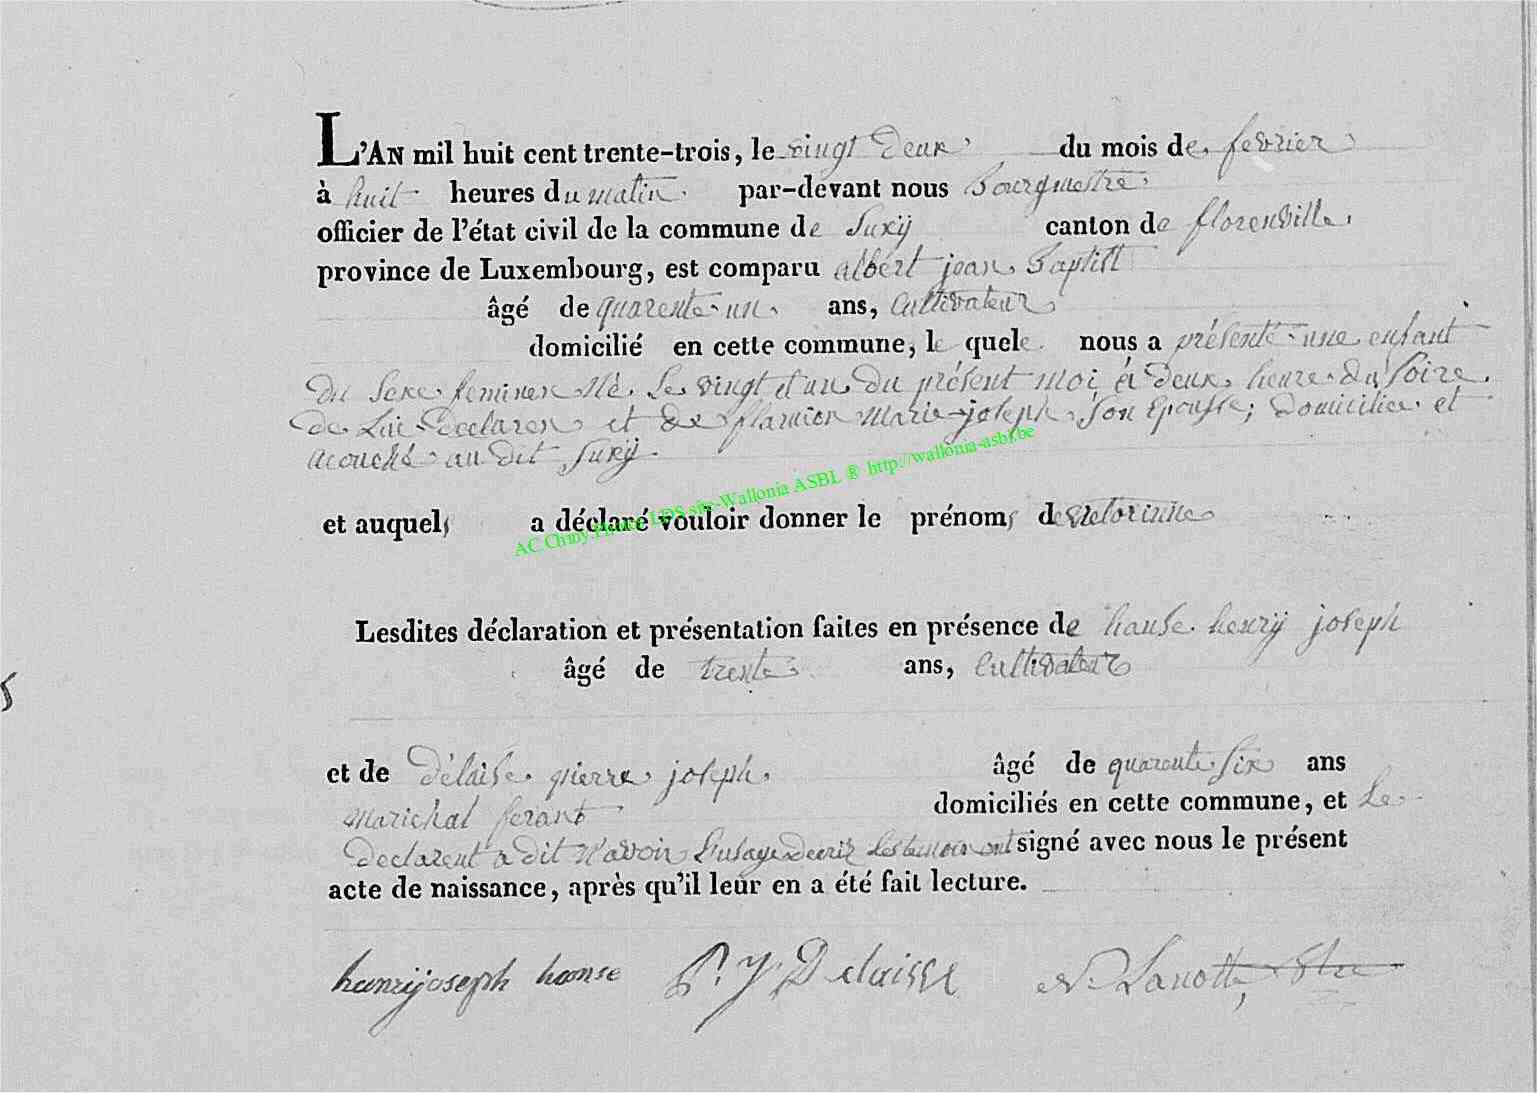 L'AN mil huit cent trente-trois, le vingt deux du mois de fevrier
à huit heures du matin par-devant nous Bourgmestre
officier de l'état civil de la commune de Suxÿ canton de florenville
province de Luxembourg, est comparu albért jean Baptist
âgé de quarente-un ans, Cultivateur
domicilié en cette commune, le quele nous a présenté une enfant
du sexe feminen né Le vingt et un du présent moi à deux heure du soire
de Lui declaren et de flamion marie-joseph Son Epousse; Domicilice et
acouché au dit Suxÿ
et auquel a déclaré vouloir donner le prénoms de victorinne
AC Chiny Photos LDS site-Wallonia ASBL ® http://wallonia-asbl.be
Lesdites déclaration et présentation faites en présence de hanse henrÿ joseph
âgé de trente ans, Cultivateur
5
et de Délaisse pierre joseph âgé de quarente Six ans
marichal ferant domiciliés en cette commune, et Le
declarent a dit n'avoir L'usage decrir Les temoin ont signé avec nous le présent
acte de naissance, après qu'il leur en a été fait lecture.
henrijoseph hanse P. J Delaisse N Lanotte